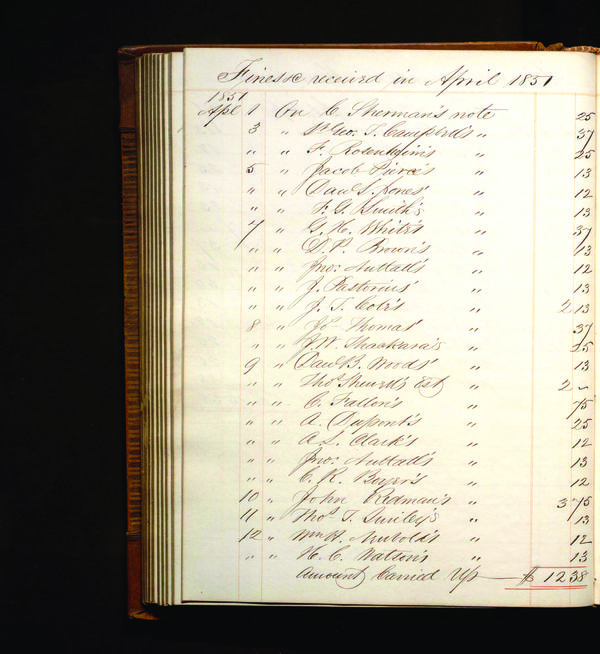 Fines &c received in April 1851
1851
Apl 1 On C. Sherman's note 25
3 " St Geo. T. Campbell's " 37
" " F. Rosenthein's " 25
5 " Jacob Pierce's " 13
" " Dav. S. Jones' " 12
" " F. G. Smith's " 13
7 " G. H. White's " 37
" " D. P. Brown's " 13
" " Jno: Nuttall's " 12
" " J. Pastorius' " 13
" " J. T. Cole's " 2 13
8 " Jos Thomas' " 37
" " J. W. Thackara's " 25
9 " Dav. B. Woods' " 13
" " Thos Shewell's Est " 2 "
" " C. Fallon's " 75
" " A. Dupont's " 25
" " A. L. Clark's " 12
" " Jno: Nuttall's " 13
" " C. R. Boyer's " 12
10 " John Redman's " 3 75
11 " Thos T. Smiley's " 13
12 " Wm H. " 12
" " H. C. Watson's " 13
Amount Carried Up $ 12 38